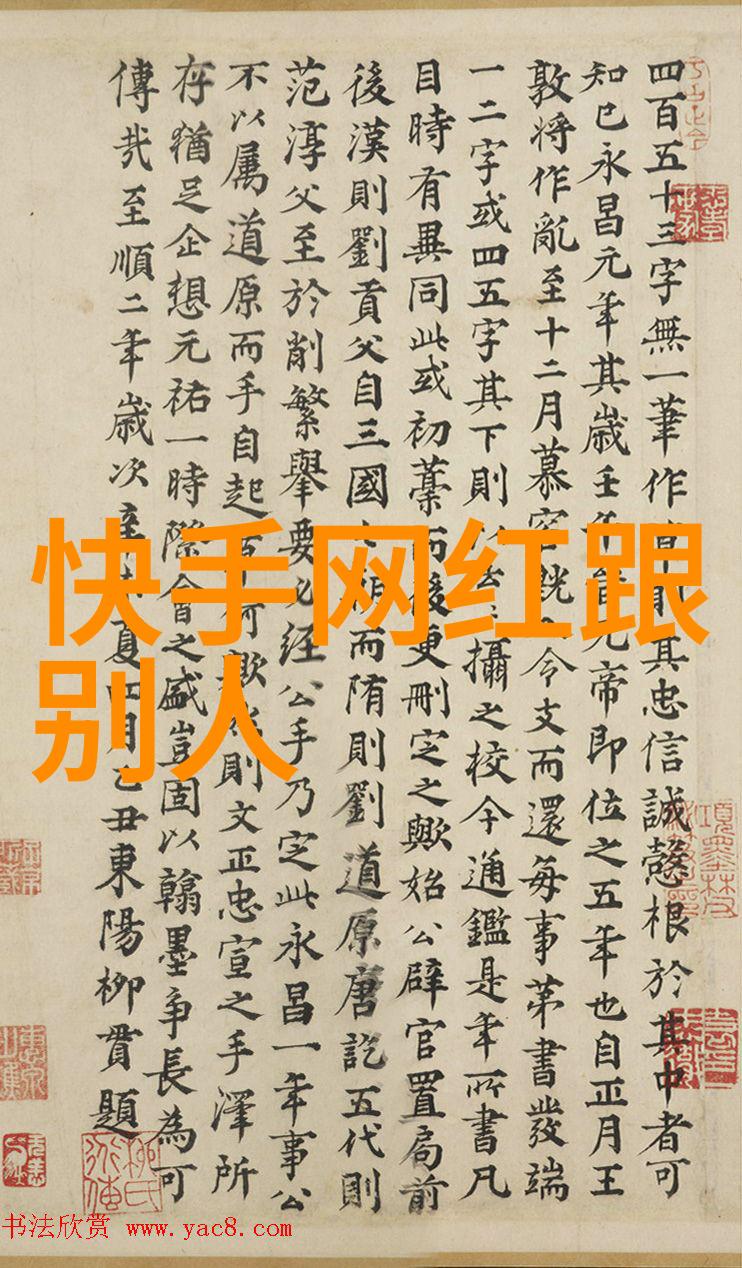 四百五十三字無一筆作其忠信誠慤根於其中者可
知已永昌元年其歲壬午元帝即位之五年也自正月王
敦將作亂至十二月慕容令支而還每事第書發端
一二字或四五字其下則攝之校今通鑑是年所書凡
目時有異同此或初藁而後更刪定之歟始公辟官置局前
後漢則劉貢父自三國而隋則劉道原唐訖五代則
范淳父至於削繁舉要必經公手乃定此永昌一年事公
不以属道原而手自起何歟則文正忠宣之手澤所
存猶足企想元祐一時際會之盛豈固以翰墨爭長為可
傳哉至順二年歲次夏四月乙丑東陽柳貫題
快手网红跟
别人
书法欣赏 www.yac8.com